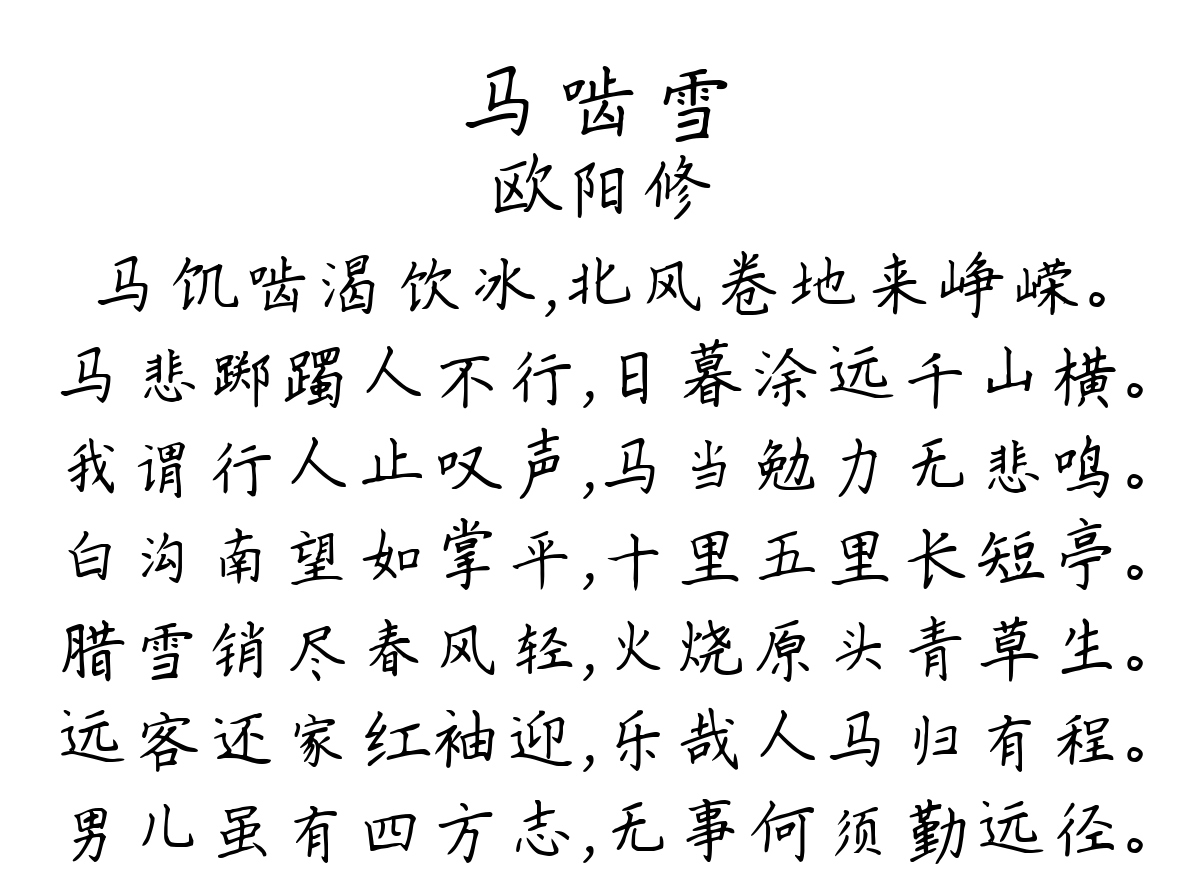 马啮雪
欧阳修
马饥啮渴饮冰,北风卷地来峥嵘。
马悲踯躅人不行,日暮涂远千山横。
我谓行人止叹声,马当勉力无悲鸣。
白沟南望如掌平,十里五里长短亭。
腊雪销尽春风轻,火烧原头青草生。
远客还家红袖迎,乐哉人马归有程。
男儿虽有四方志,无事何须勤远径。